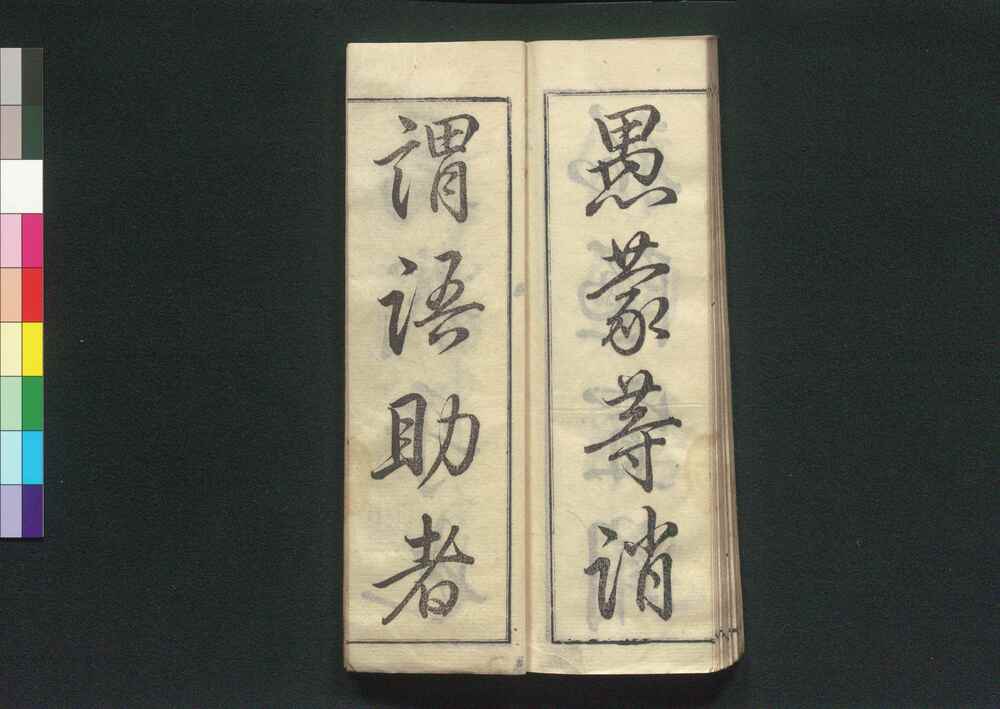 愚蒙等誚
謂語助者